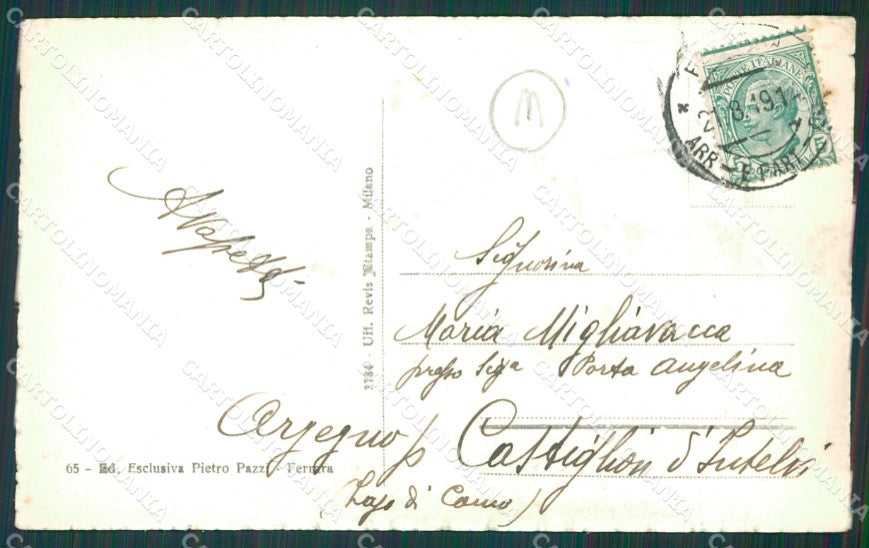 M
POSTE ITALIANE
8.191
ARR - E PAR
Signorina
Maria Migliavacca
presso Sig.a Porta Angelina
Argegno p Castiglion d'Intelvi
(Lago di Como)
2784 - Uff. Revis Stampa - Milano
65 - Ed. Esclusiva Pietro Pazzi - Ferrara
CARTOLINOMANIA